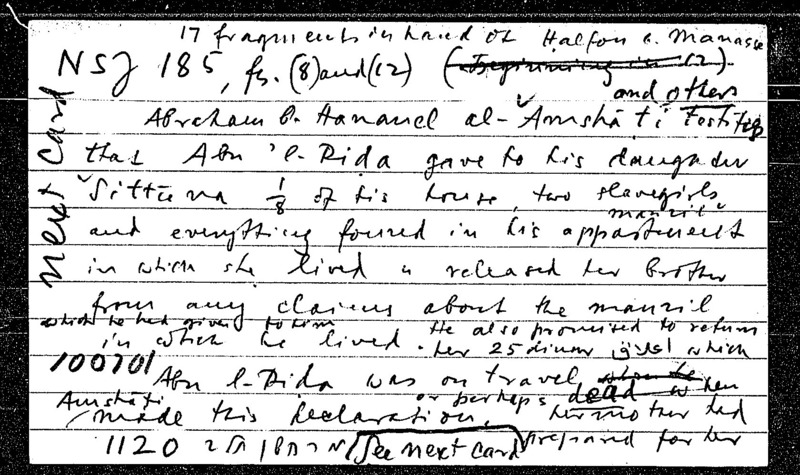 17 fragments in hand of Halfon b. Manasse
NSJ 185, fs. (8) and (12) (Beginning in 12)
and others
Abraham b. Hananel al-Amshāṭī testifies
that Abu 'l-Rida gave to his daughter
Sittūna 1/8 of his house, two slavegirls
manzil
and everything found in his appartment
in which she lived & released her brother
from any claims about the manzil
which he had given to him
in which he lived. He also promised to return
her 25 dinar which
100701
Abu l-Rida was on travel when he
or perhaps dead when
Amshāṭī made this declaration, her mother had
prepared for her
1120 See next card
next card